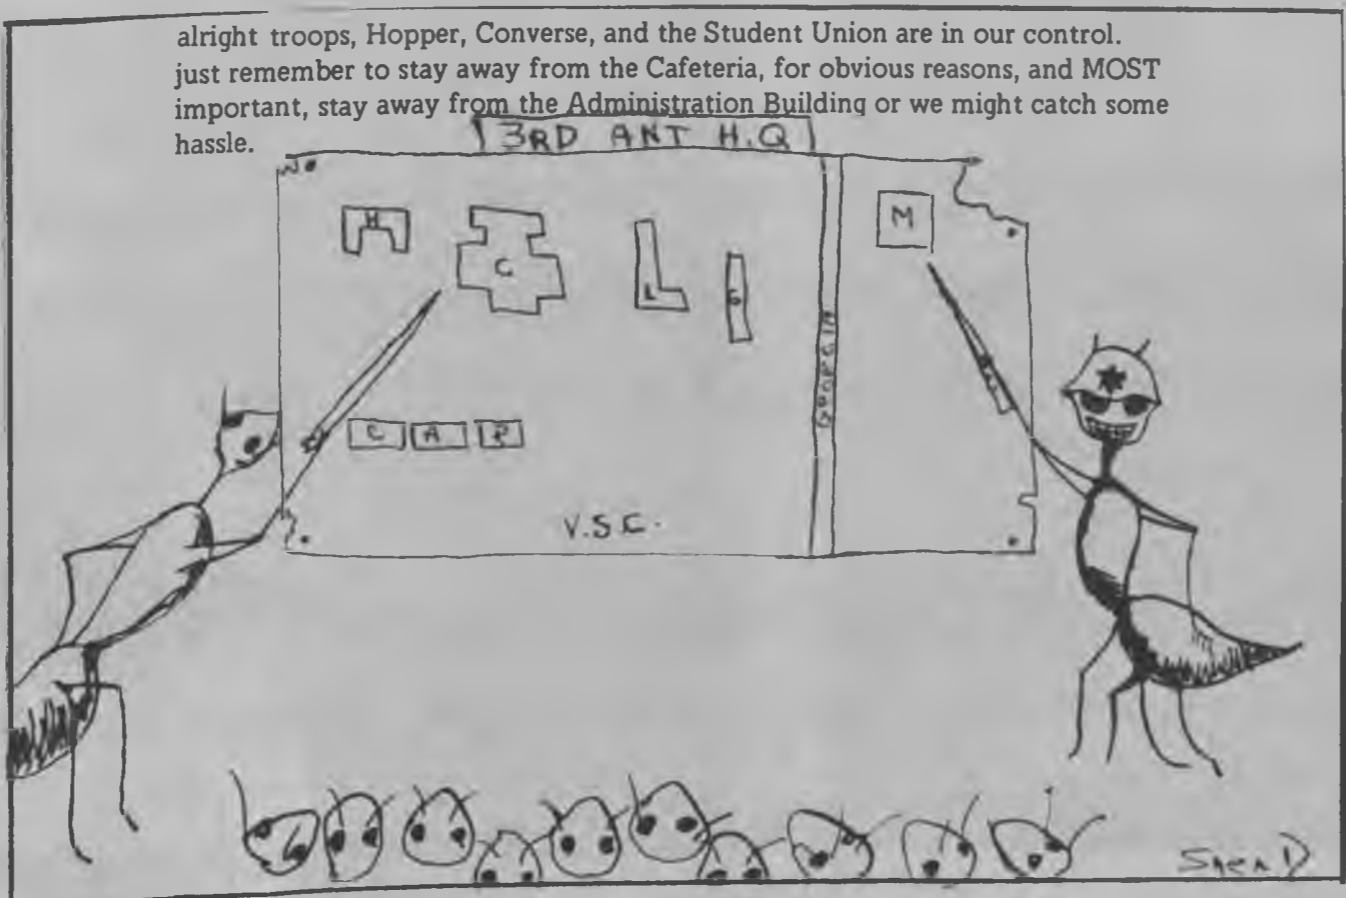 alright troops, Hopper, Converse, and the Student Union are in our control.
just remember to stay away from the Cafeteria, for obvious reasons, and MOST
important, stay away from the Administration Building or we might catch some
hassle.
3RD ANT H.Q
H
C
L
G
M
GEORGIA
C A P
V.S.C.